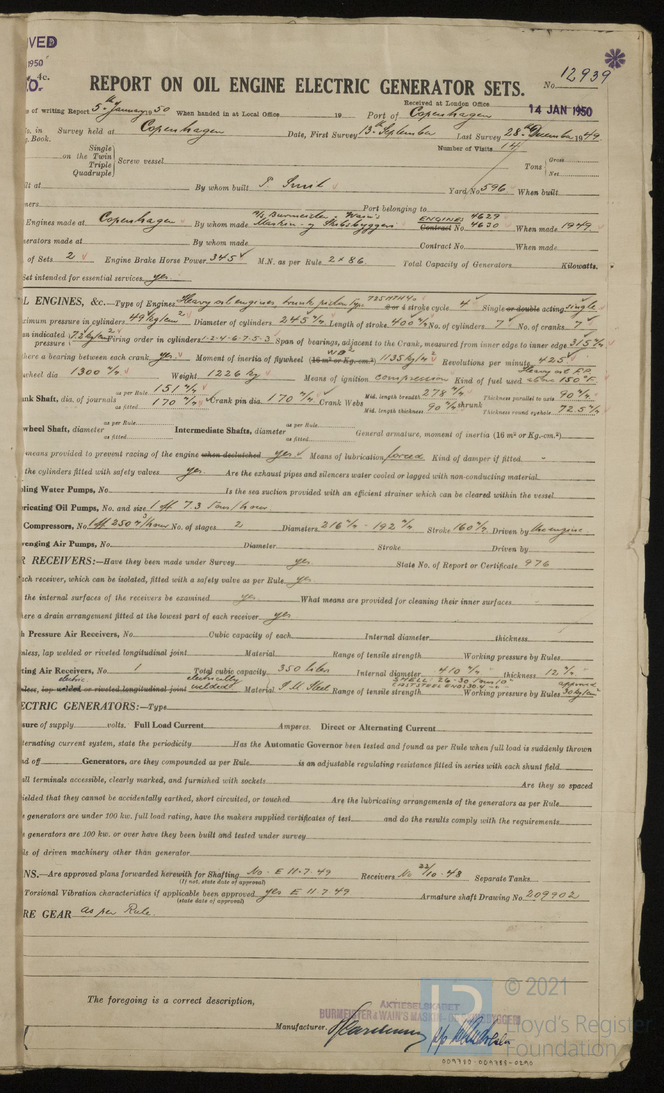 VED
1950
4c.
REPORT ON OIL ENGINE ELECTRIC GENERATOR SETS.
No. 12939
Received at London Office
14 JAN 1950
of writing Report 5th January 1950 When handed in at Local Office 19 Port of Copenhagen
in Survey held at Copenhagen Date, First Survey 13th September Last Survey 28th December 1949
Book. Number of Visits 14
Single
on the Twin
Triple
Quadruple
Screw vessel
Tons Gross
Net
at By whom built P. Smit Yard No 596 When built
Port belonging to
Engines made at Copenhagen By whom made A/S Burmeister & Wain's Maskin- og Skibsbyggeri ENGINES 4629 Contract No. 4630 When made 1949
made at By whom made Contract No. When made
of Sets 2 Engine Brake Horse Power 345 M.N. as per Rule 2 x 86 Total Capacity of Generators Kilowatts.
Set intended for essential services yes
L ENGINES, &c.—Type of Engines Heavy oil engines trunk piston type 2 or 4 stroke cycle 4 Single or double acting single
pressure in cylinders 49 kg/cm² Diameter of cylinders 245 m/m Length of stroke 400 m/m No. of cylinders 7 No. of cranks 7
indicated
pressure Firing order in cylinders 1-2-4-6-7-5-3 Span of bearings, adjacent to the Crank, measured from inner edge to inner edge 315 m/m
here a bearing between each crank yes Moment of inertia of flywheel (16 m² or Kg.-cm.²) 1135 kg/m² Revolutions per minute 425
wheel dia 1300 m/m Weight 1226 kg Means of ignition compression Kind of fuel used Heavy oil F.P. above 150°F.
Shaft, dia. of journals as per Rule 151 m/m as fitted 170 m/m Crank pin dia. 170 m/m Crank Webs Mid. length breadth 278 m/m Mid. length thickness 90 m/m shrunk Thickness parallel to axis 90 m/m Thickness round eyehole 72.5 m/m
wheel Shaft, diameter as per Rule as fitted Intermediate Shafts, diameter as per Rule as fitted General armature, moment of inertia (16 m² or Kg.-cm.²)
means provided to prevent racing of the engine when declutched yes Means of lubrication forced Kind of damper if fitted -
the cylinders fitted with safety valves yes. Are the exhaust pipes and silencers water cooled or lagged with non-conducting material
ling Water Pumps, No. Is the sea suction provided with an efficient strainer which can be cleared within the vessel
ricating Oil Pumps, No. and size 1 off 7.3 Tons/hour
Compressors, No. 1 off 250 m³/hour No. of stages 2 Diameters 216 m/m - 192 m/m Stroke 160 m/m Driven by the engine
enging Air Pumps, No. Diameter Stroke Driven by
RECEIVERS:—Have they been made under Survey yes State No. of Report or Certificate 976
ch receiver, which can be isolated, fitted with a safety valve as per Rule yes
the internal surfaces of the receivers be examined yes What means are provided for cleaning their inner surfaces -
ere a drain arrangement fitted at the lowest part of each receiver yes
h Pressure Air Receivers, No. Cubic capacity of each Internal diameter thickness
less, lap welded or riveted longitudinal joint Material Range of tensile strength Working pressure by Rules
ting Air Receivers, No. 1 Total cubic capacity 350 liter Internal diameter 410 m/m thickness 12 m/m
less, lap welded or riveted longitudinal joint electrically welded Material S.M. Steel Range of tensile strength Working pressure by Rules approved 30 kg/cm²
ECTRIC GENERATORS:—Type
sure of supply volts. Full Load Current Amperes. Direct or Alternating Current
ternating current system, state the periodicity Has the Automatic Governor been tested and found as per Rule when full load is suddenly thrown
d off Generators, are they compounded as per Rule is an adjustable regulating resistance fitted in series with each shunt field
all terminals accessible, clearly marked, and furnished with sockets Are they so spaced
ielded that they cannot be accidentally earthed, short circuited, or touched Are the lubricating arrangements of the generators as per Rule
generators are under 100 kw. full load rating, have the makers supplied certificates of test and do the results comply with the requirements
generators are 100 kw. or over have they been built and tested under survey
ils of driven machinery other than generator
NS.—Are approved plans forwarded herewith for Shafting No. E 11.7.49 Receivers No 22/10.48 Separate Tanks
(If not, state date of approval)
Torsional Vibration characteristics if applicable been approved yes E 11.7.49 Armature shaft Drawing No. 209902
(state date of approval)
RE GEAR as per Rule.
The foregoing is a correct description,
AKTIESELSKABET
BURMEISTER & WAIN'S MASKIN- OG SKIBSBYGGERI
Manufacturer.
© 2021
Lloyd's Register
Foundation
009780-009785-0290